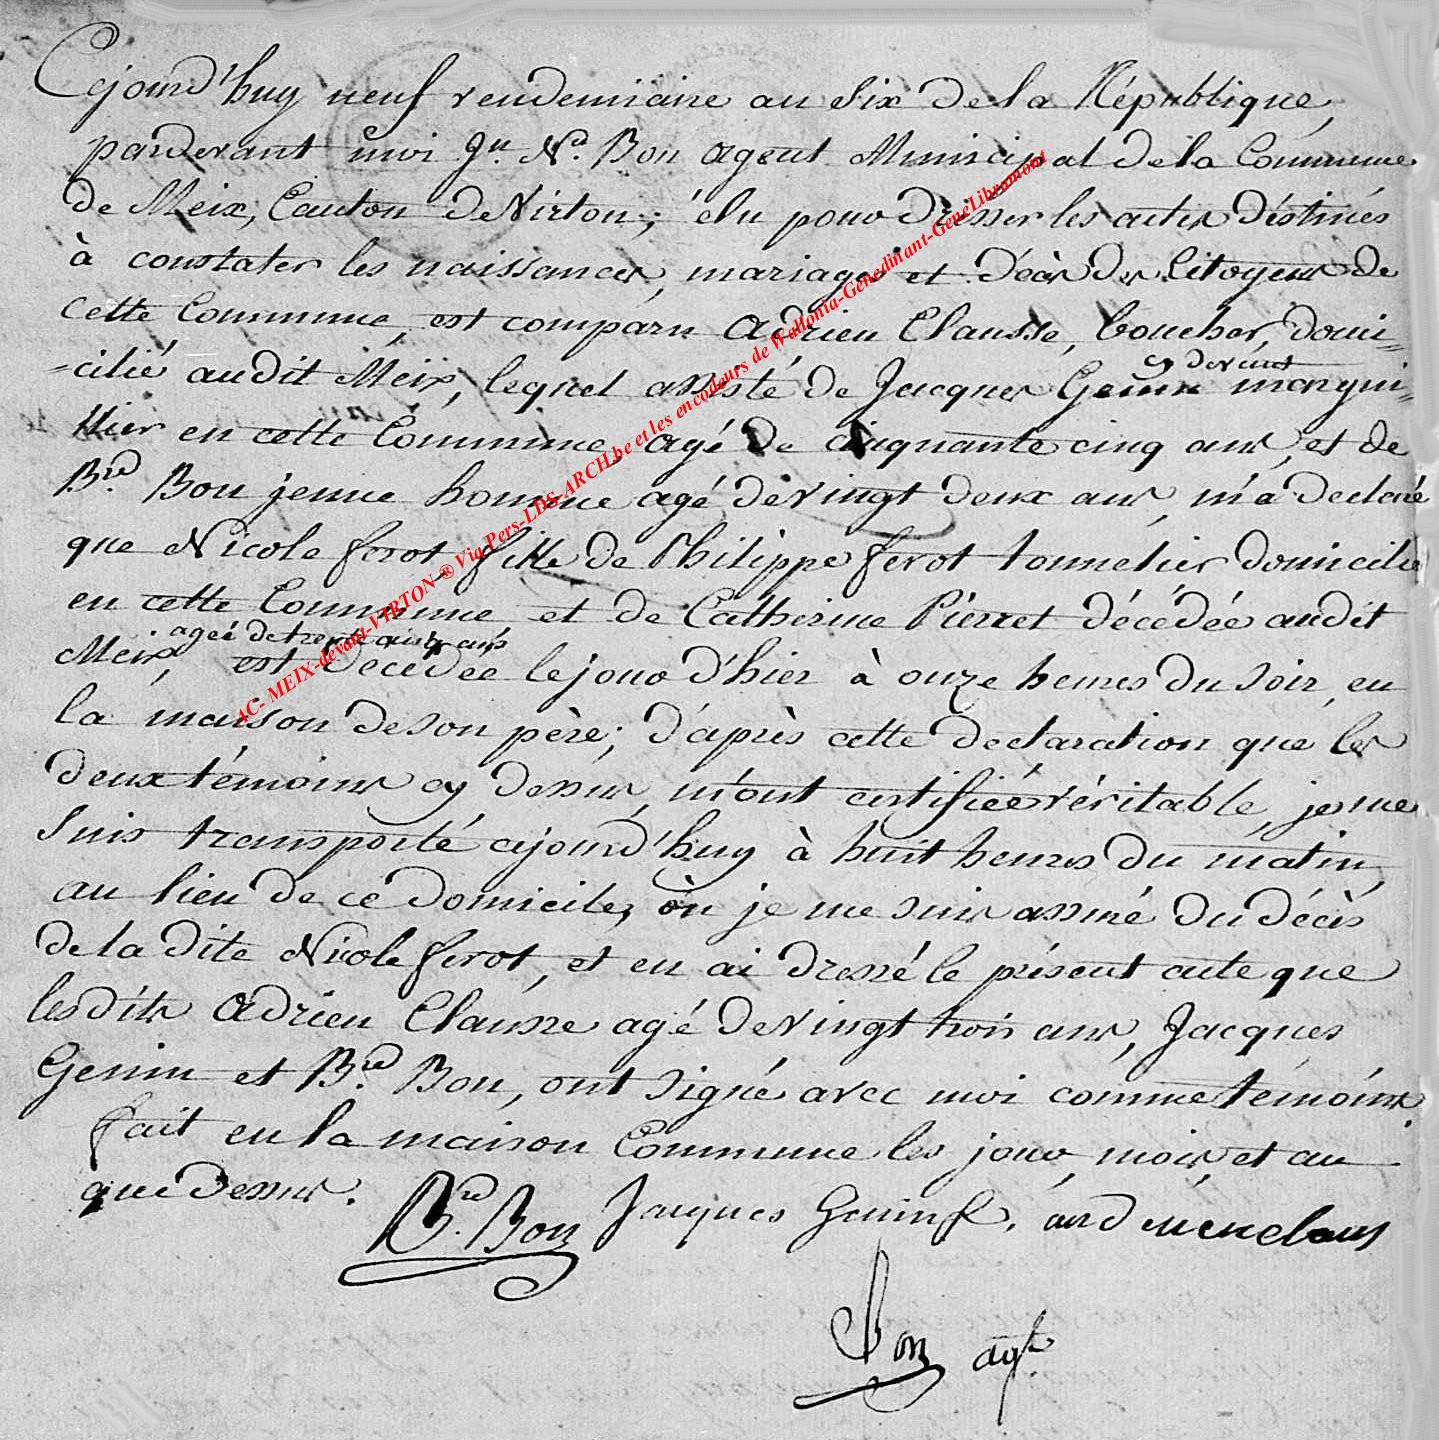 Cejourd'huy neuf vendemiaire an six de la République,
pardevant moi Jn. Nas. Bon agent Municipal de la Commune
de Meix, Canton de Virton; élu pour dresser les actes déstinés
à constater les naissances, mariages et décès des Citoyens de
cette Commune, est comparu Adrien Clausse, boucher, domi-
-cilié audit Meix, lequel assisté de Jacques Genin cy devant marguil-
llier en cette Commune, agé de cinquante cinq ans, et de
Brd. Bon jeune homme agé de vingt deux ans, m'a declaré
que Nicole ferot, fille de Philippe ferot tonnelier domicilié
en cette Commune, et de Catherine Pierret décédée audit
Meix, agée de trente ans est décédée le jour d'hier à onze heures du soir, en
la maison de son père; d'après cette declaration que les
deux témoins cy dessus, m'ont certifiée véritable, je me
suis transporté cejourd'huy à huit heures du matin,
au lieu de ce domicile, où je me suis assuré du décès
de la dite Nicole ferot, et en ai dressé le présent acte que
lesdits Adrien Clausse agé de vingt trois ans, Jacques
Genin et Brd. Bon, ont signé avec moi comme témoins.
fait en la maison Commune les jour, mois et an
que dessus.
Brd. Bon Jacques Genin
Bon agt.
AC- MEIX-devant-VIRTON ® Via Pers-LDS-ARCH.be et les encodeurs de Wallonia-Genedinant-GeneLibramont